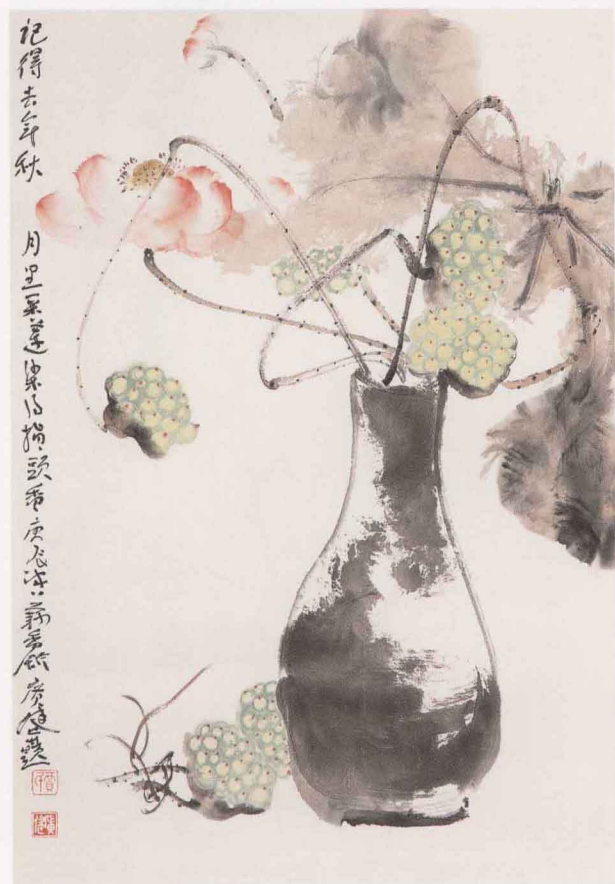 记得去年秋 月里采莲染得指头香 庚辰 藕香馆